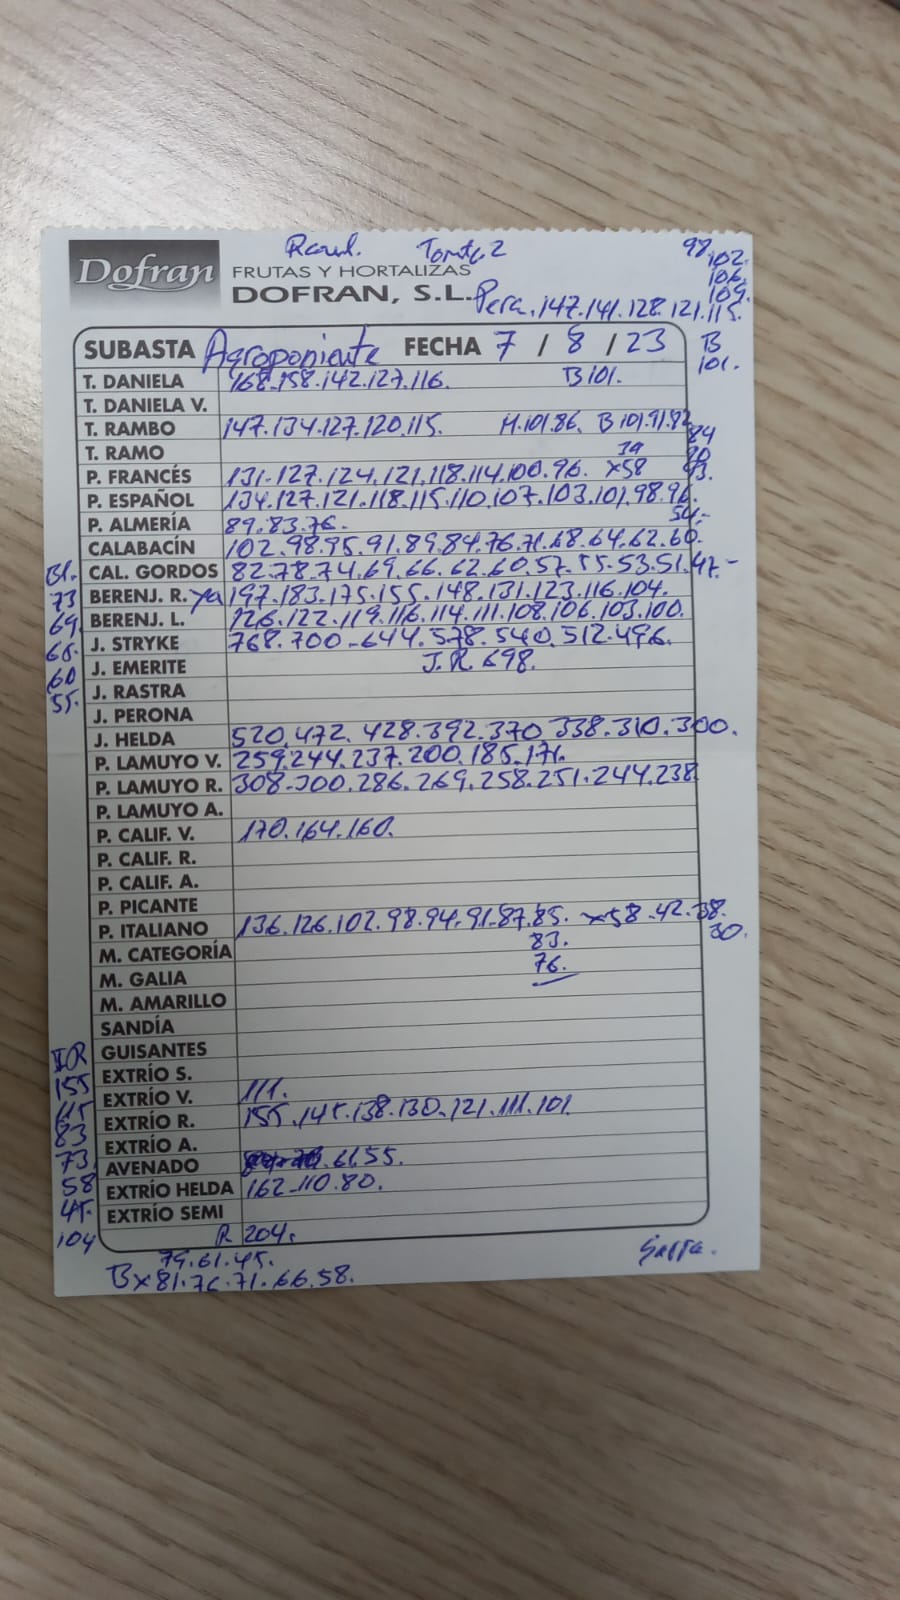 Raul. Tomate 2 98.
102.
106.
109.
Dofran FRUTAS Y HORTALIZAS
DOFRAN, S.L. Pera. 147.141.128.121.115.
SUBASTA Agroponiente FECHA 7 / 8 / 23 B
101.
T. DANIELA 168.158.142.127.116. B 101.
T. DANIELA V.
T. RAMBO 147.134.127.120.115. H.101.86. B 101.91.82
84
T. RAMO 39
P. FRANCÉS 131.127.124.121.118.114.100.96. x58
P. ESPAÑOL 134.127.121.118.115.110.107.103.101.98.96.
P. ALMERÍA 89.83.76. 54.-
CALABACÍN 102.98.95.91.89.84.76.71.68.64.62.60.
CAL. GORDOS 82.78.74.69.66.62.60.57.55.53.51.47.-
Bl.
73
69.
66.
60
55.
BERENJ. R. ya 197.183.175.155.148.131.123.116.104.
BERENJ. L. 126.122.119.116.114.111.108.106.103.100.
J. STRYKE 768.700-644.578.540.512.496.
J. EMERITE J.R. 698.
J. RASTRA
J. PERONA
J. HELDA 520.472.428.392.370.338.310.300.
P. LAMUYO V. 259.244.237.200.185.171.
P. LAMUYO R. 308-300.286.269.258.251.244.238
P. LAMUYO A.
P. CALIF. V. 170.164.160.
P. CALIF. R.
P. CALIF. A.
P. PICANTE
P. ITALIANO 136.126.102.98.94.91.87.85. x58.42.38.
30.
M. CATEGORÍA 83.
M. GALIA 76.
M. AMARILLO
SANDÍA
GUISANTES
155
83
73
58
45.
104
EXTRÍO S.
EXTRÍO V. 111.
EXTRÍO R. 155.145.138.130.121.111.101.
EXTRÍO A.
AVENADO 61.55.
EXTRÍO HELDA 162-110.80.
EXTRÍO SEMI
R 204.
79.61.45.
Bx81.76.71.66.58.